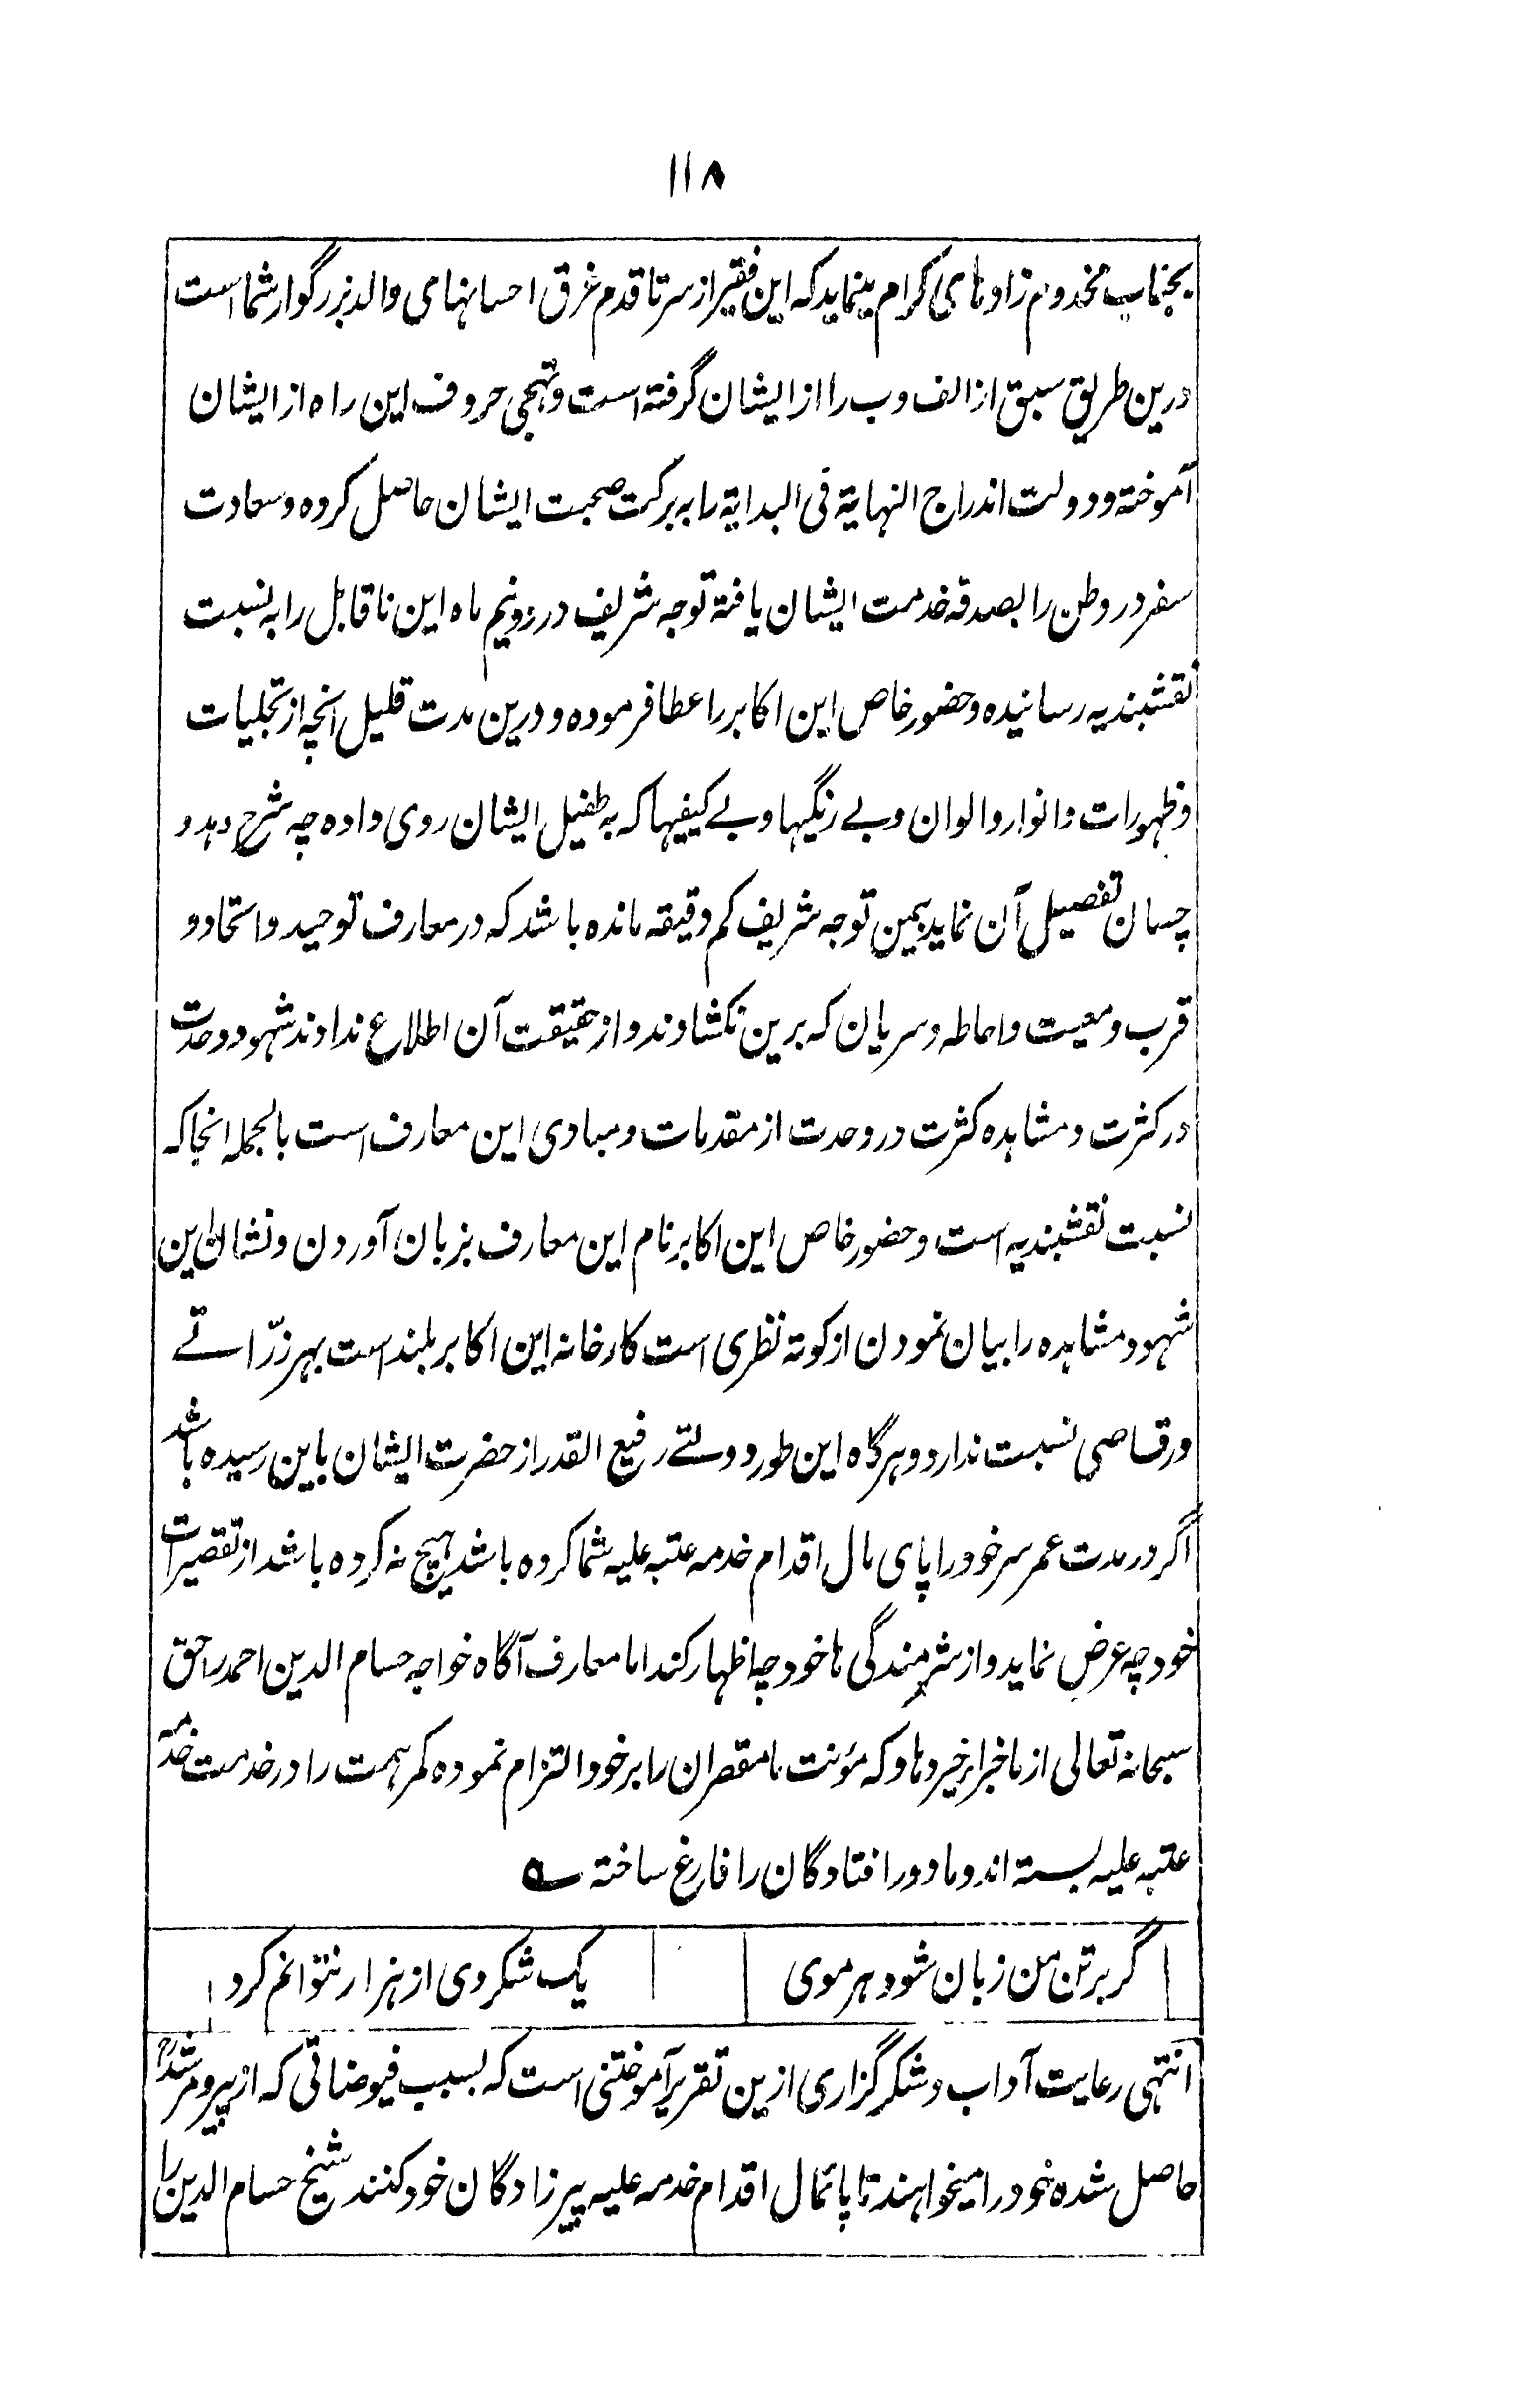 ۱۱۸
بجناب مخدوم زادهای کرام مینماید که این فقیر از سر تا قدم غرق احسانهای والد بزرگوار شما است
درین طریق سبق از الف و ب را از ایشان گرفته است و تهجی حروف این راه از ایشان
آموخته و دولت اندراج النهایة فی البدایة را به برکت صحبت ایشان حاصل کرده و سعادت
سفر در وطن را بصدقه خدمت ایشان یافته توجه شریف در دو نیم ماه این ناقابل را به نسبت
نقشبندیه رسانیده و حضور خاص این اکابر را عطا فرموده و درین مدت قلیل آنچه از تجلیات
و ظهورات و انوار و الوان و بے رنگیها و بے کیفیها که به طفیل ایشان روی داده چه شرح دهد و
چسان تفصیل آن نماید بیمن توجه شریف کم دقیقه مانده باشد که در معارف توحید و اتحاد و
قرب و معیت و احاطه و سریان که برین نکشادند و از حقیقت آن اطلاع ندادند شهود وحدت
در کثرت و مشاهده کثرت در وحدت از مقدمات و مبادی این معارف است بالجمله انجا که
نسبت نقشبندیه است و حضور خاص این اکابر نام این معارف بزبان آوردن و نشان این
شهود و مشاهده را بیان نمودن از کوته نظری است کارخانه این اکابر بلند است بهر زرّاتے
و رقاصی نسبت ندارد و هرگاه این طور دولتے رفیع القدر از حضرت ایشان باین رسیده باشد
اگر در مدت عمر سر خود را پای مال اقدام خدمه عتبه علیه شما کرده باشد هیچ نه کرده باشد از تقصیرات
خود چه عرض نماید و از شرمندگی ها خود چه اظهار کند اما معارف آگاه خواجه حسام الدین احمد را حق
سبحانه تعالی از ما خبر از خیر دهاد که مؤنت ما مقصران را بر خود التزام نموده کمر همت را در خدمت خدمه
عتبه علیه بسته اند و ما دور افتادگان را فارغ ساخته ؎
گر بر تن من زبان شود هر موی یک شکر وی از هزار نتوانم کرد
انتهی رعایت آداب و شکر گزاری ازین تقریر آموختنی است که بسبب فیوضاتی که از پیر و مرشد
حاصل شده خود را میخواهند تا پائمال اقدام خدمه علیه پیرزادگان خود کنند شیخ حسام الدین را